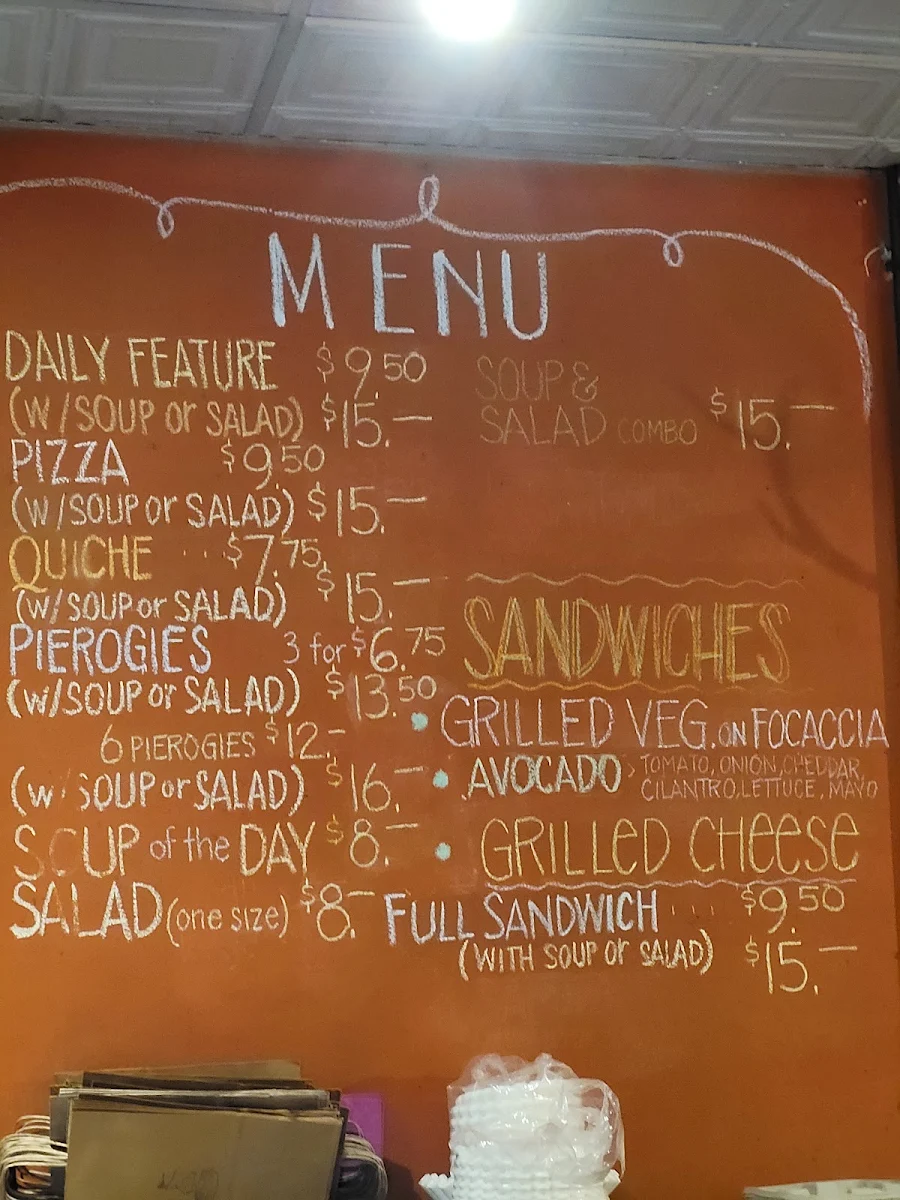 MENU
DAILY FEATURE $9.50
(W/SOUP OR SALAD) $15.—
PIZZA $9.50
(W/SOUP or SALAD) $15.—
QUICHE ... $7.75
(w/SOUP or SALAD) $15.—
PIEROGIES 3 for $6.75
(w/SOUP or SALAD) $13.50
6 PIEROGIES $12.-
(w/SOUP or SALAD) $16.—
SOUP of the DAY $8.—
SALAD (one size) $8.—
SOUP &
SALAD COMBO $15.—
SANDWICHES
• GRILLED VEG. ON FOCACCIA
• AVOCADO > TOMATO, ONION, CHEDDAR,
CILANTRO, LETTUCE, MAYO
• GRILLED CHEESE
FULL SANDWICH ... $9.50
(WITH SOUP OR SALAD) $15.—